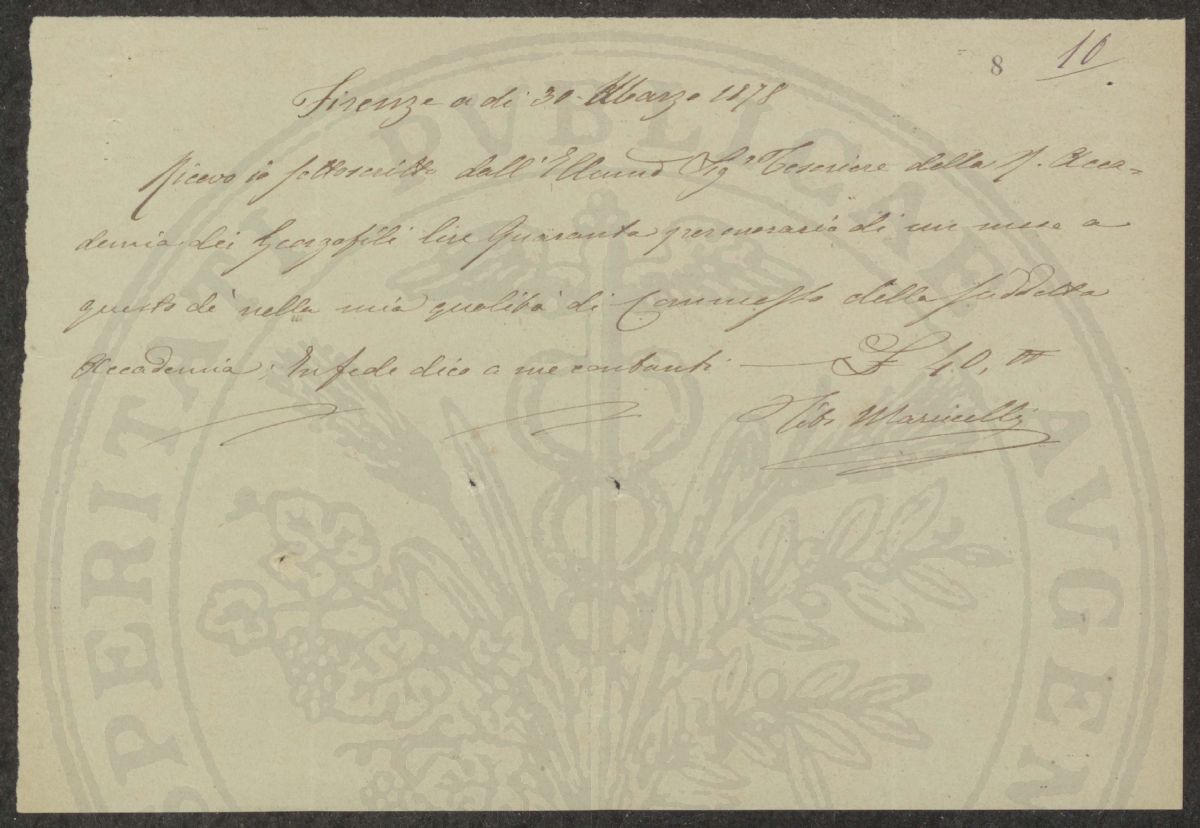 8 10
Firenze a di 30 Marzo 1878
Ricevo io sottoscritto dall' Illmo Sigr Tesoriere della R. Acca=
demia dei Georgofili lire Quaranta per onorario di un mese a
questo dì nella mia qualità di Commesso della suddetta
Accademia; In fede dico a me contanti — £ 40,
PROSPERITATI PVBLICAE AVGEN